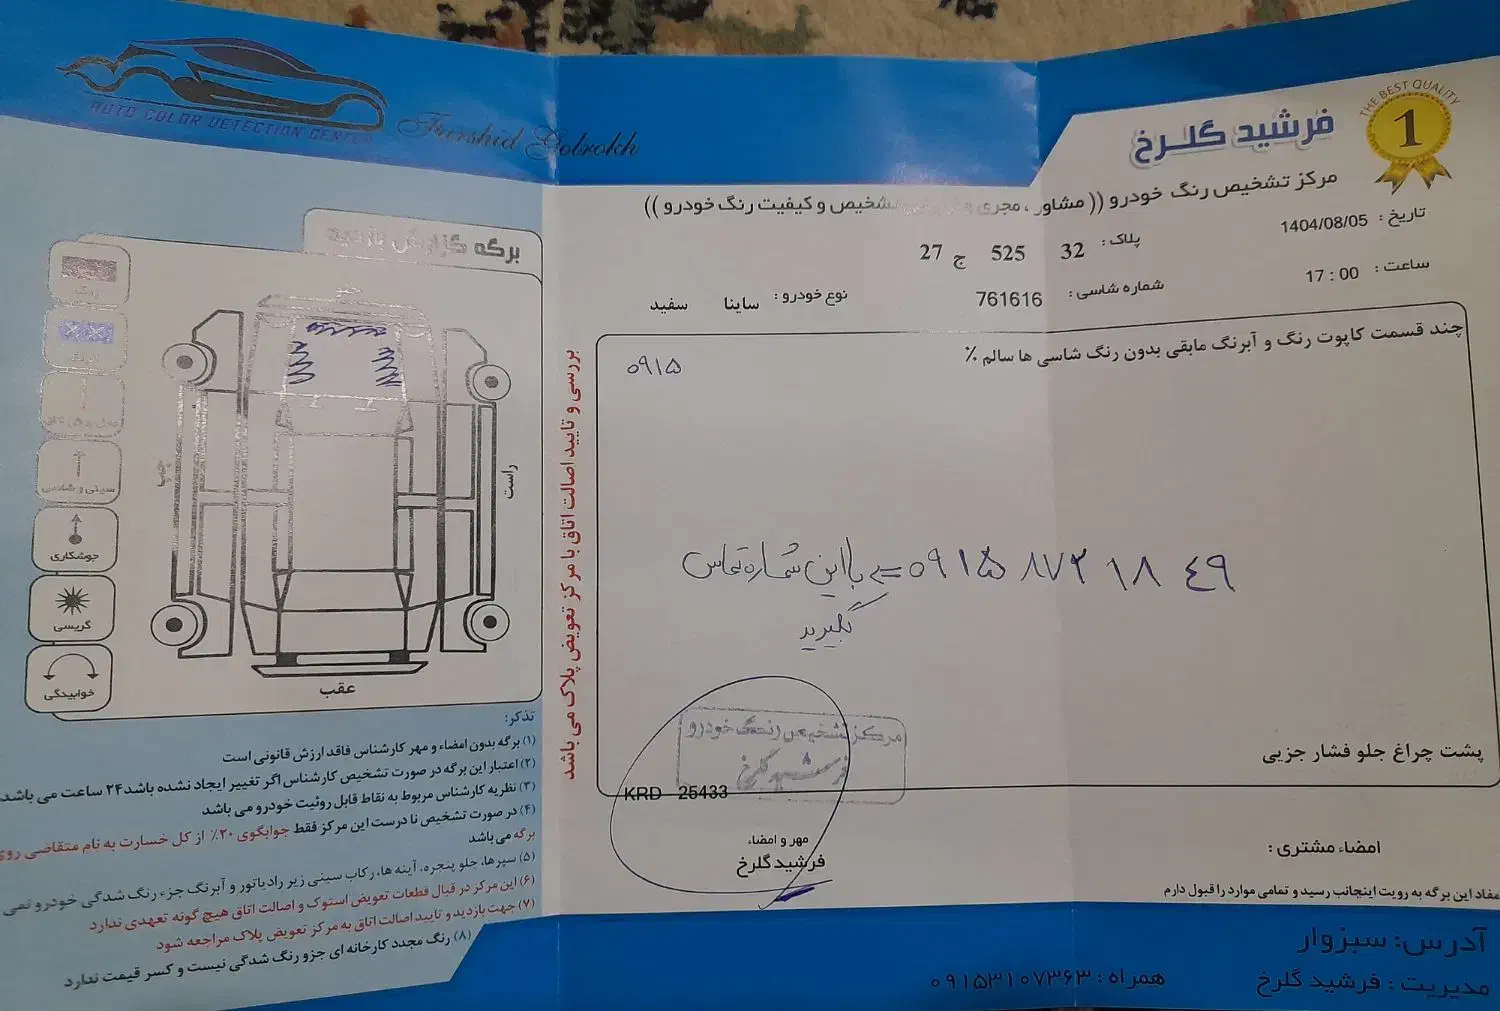 AUTO COLOR DETECTION CENTER
Farshid Golrokh
THE BEST QUALITY
1
فرشید گلرخ
مرکز تشخیص رنگ خودرو (( مشاور ، مجری و تشخیص و کیفیت رنگ خودرو ))
تاریخ : 1404/08/05
پلاک : 32 525 ج 27
ساعت : 17 : 00
شماره شاسی : 761616
نوع خودرو : ساینا سفید
چند قسمت کاپوت رنگ و آبرنگ مابقی بدون رنگ شاسی ها سالم ٪
۰۹۱۵
۰۹۱۵ ۸۷۲ ۱۸ ۴۹ با این شماره تماس
بگیرید
پشت چراغ جلو فشار جزیی
مرکز تشخیص رنگ خودرو
فرشید گلرخ
KRD 25433
مهر و امضاء
فرشید گلرخ
امضاء مشتری :
مفاد این برگه به رویت اینجانب رسید و تمامی موارد را قبول دارم
آدرس: سبزوار
مدیریت : فرشید گلرخ
همراه : ۰۹۱۵۳۱۰۷۳۶۳
بررسی و تایید اصالت اتاق با مرکز تعویض پلاک می باشد
برگه گزارش بازدید
جلو
چپ
راست
عقب
رنگ
سینی و شاسی
جوشکاری
گریسی
خوابیدگی
تذکر:
۱) برگه بدون امضاء و مهر کارشناس فاقد ارزش قانونی است
۲) اعتبار این برگه در صورت تشخیص کارشناس اگر تغییر ایجاد نشده باشد ۲۴ ساعت می باشد
۳) نظریه کارشناس مربوط به نقاط قابل روئیت خودرو می باشد
۴) در صورت تشخیص نا درست این مرکز فقط جوابگوی ۲۰٪ از کل خسارت به نام متقاضی روی
برگه می باشد
۵) سپرها، جلو پنجره، آینه ها، رکاب سینی زیر رادیاتور و آبرنگ جزء رنگ شدگی خودرو نمی
۶) این مرکز در قبال قطعات تعویض استوک و اصالت اتاق هیچ گونه تعهدی ندارد
۷) جهت بازدید و تایید اصالت اتاق به مرکز تعویض پلاک مراجعه شود
۸) رنگ مجدد کارخانه ای جزو رنگ شدگی نیست و کسر قیمت ندارد